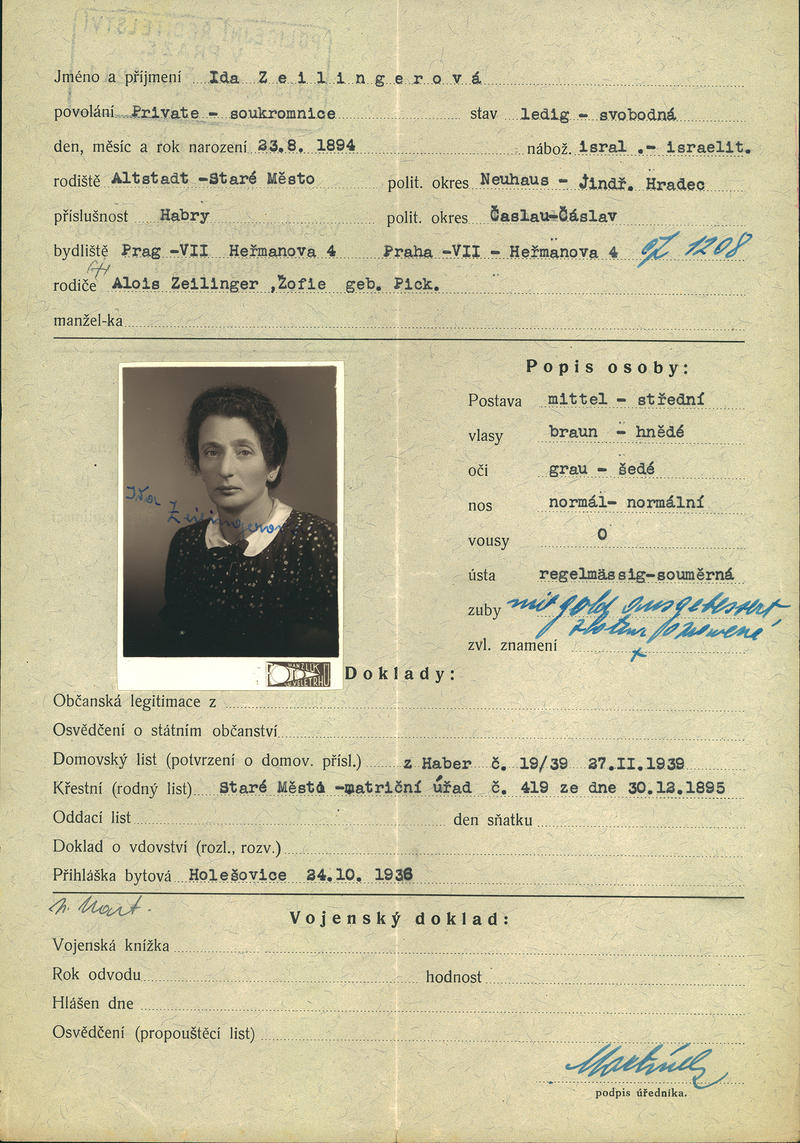 POLICEJNÍ ŘEDITELSTVÍ
V PRAZE
Jméno a příjmení Ida Zeilingerová
povolání Private - soukromnice stav ledig - svobodná
den, měsíc a rok narození 23.8. 1894 nábož. isral .- israelit.
rodiště Altstadt -Staré Město polit. okres Neuhaus - Jindř. Hradec
příslušnost Habry polit. okres Časlau-Čáslav
bydliště Prag -VII Heřmanova 4 Praha -VII - Heřmanova 4 čj 1208
rodiče Alois Zeilinger ,Žofie geb. Pick.
manžel-ka
Popis osoby:
Postava mittel - střední
vlasy braun - hnědé
oči grau - šedé
nos normál- normální
vousy 0
ústa regelmässig-souměrná
zuby mit gold ausgebessert
zlatem
zvl. znamení
Ida
Zeilingerová
Doklady:
Občanská legitimace z
Osvědčení o státním občanství
Domovský list (potvrzení o domov. přísl.) z Haber č. 19/39 27.II.1939
Křestní (rodný list) Staré Město -matriční úřad č. 419 ze dne 30.12.1895
Oddací list den sňatku
Doklad o vdovství (rozl., rozv.)
Přihláška bytová Holešovice 24.10. 1936
Vojenský doklad:
Vojenská knížka
Rok odvodu hodnost
Hlášen dne
Osvědčení (propouštěcí list)
podpis úředníka.